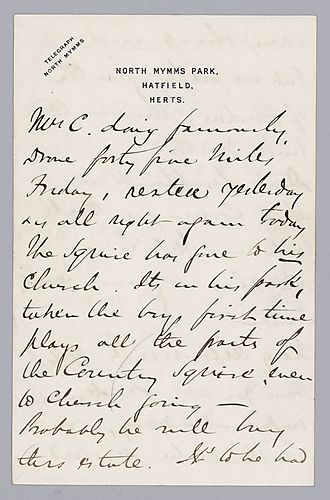 TELEGRAPH
NORTH MYMMS
NORTH MYMMS PARK,
HATFIELD,
HERTS.
Mrs C. doing famously.
Drove forty five miles
Friday, rested yesterday
& is all right again today
The Squire has gone to his
Church. Its in his park,
taken the boys first time
plays all the parts of
the Country Squire even
to Church going —
Probably he will buy
this estate. It's to be had